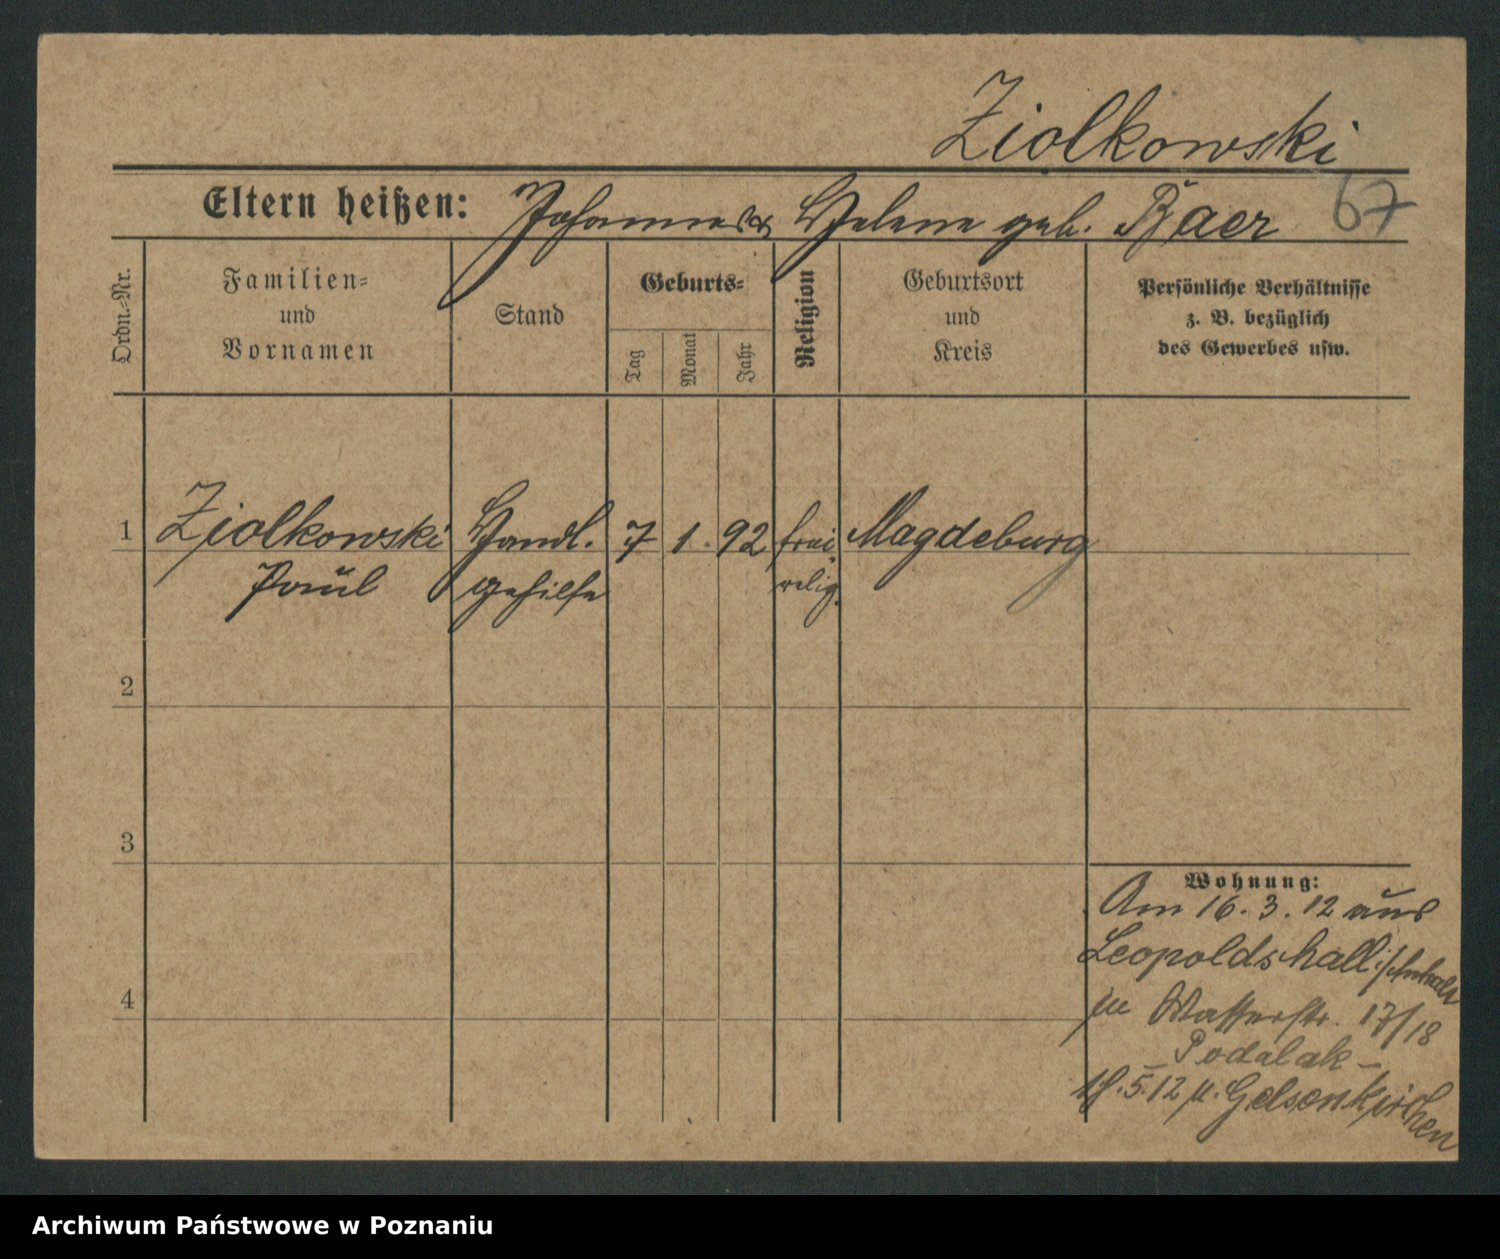 Ziolkowski
Eltern heißen: Johannes & Helene geb. Baer 67
Ordn.-Nr.
Familien-
und
Vornamen
Stand
Geburts-
Tag
Monat
Jahr
Religion
Geburtsort
und
Kreis
Persönliche Verhältnisse
z. B. bezüglich
des Gewerbes usw.
1 Ziolkowski Handl. 7 1. 92 frei Magdeburg
Paul gehilfe relig.
2
3
Wohnung:
Am 16. 3. 12 aus
Leopoldshall i/Anhalt
4
Wasserstr. 17/18
Podalak –
5.12 n. Gelsenkirchen
Archiwum Państwowe w Poznaniu